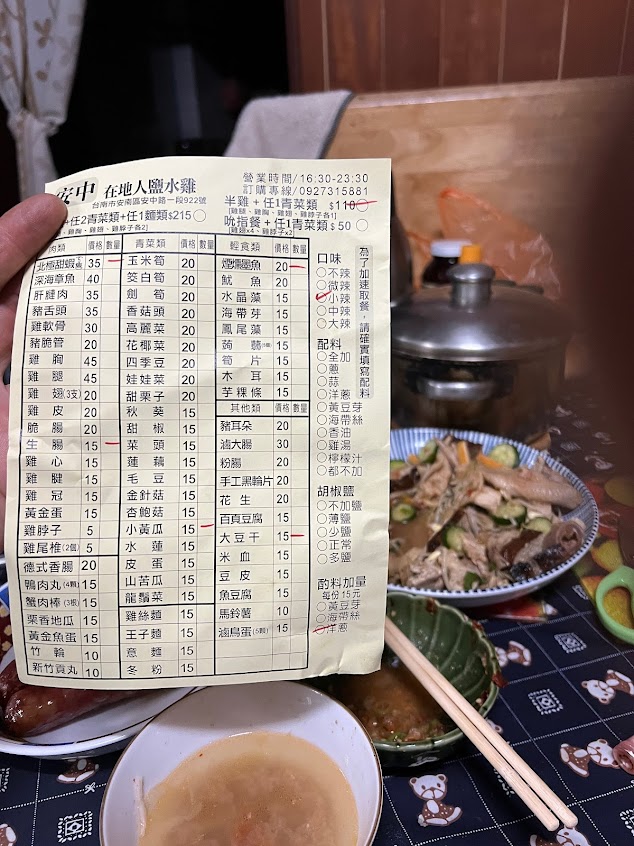 安中 在地人鹽水雞
台南市安南區安中路一段922號
營業時間/16:30-23:30
訂購專線/0927315881
半雞+任1青菜類 $110
[雞腿、雞胸、雞翅、雞脖子各1]
+任2青菜類+任1麵類$215
吮指餐+任1青菜類$50
[雞翅x4、雞脖子x2]
肉類 價格 數量
北極甜蝦 35
深海章魚 40
肝腱肉 35
豬舌頭 35
雞軟骨 30
豬脆管 20
雞胸 45
雞腿 45
雞翅(3支) 20
雞皮 20
脆腸 20
生腸 15
雞心 15
雞腱 15
雞冠 15
黃金蛋 15
雞脖子 5
雞尾椎(2個) 5
德式香腸 20
鴨肉丸(4顆) 15
蟹肉棒(3根) 15
栗香地瓜 15
黃金魚蛋 15
竹輪 10
新竹貢丸 10
青菜類 價格 數量
玉米筍 20
茭白筍 20
劍筍 20
香菇頭 20
高麗菜 20
花椰菜 20
四季豆 20
娃娃菜 20
甜栗子 20
秋葵 15
甜椒 15
菜頭 15
蓮藕 15
毛豆 15
金針菇 15
杏鮑菇 15
小黃瓜 15
水蓮 15
皮蛋 15
山苦瓜 15
龍鬚菜 15
雞絲麵 15
王子麵 15
意麵 15
冬粉 15
輕食類 價格 數量
煙燻墨魚 20
魷魚 20
水晶藻 15
海帶芽 15
鳳尾藻 15
蒟蒻 15
筍片 15
木耳 15
芋粿條 15
其他類 價格 數量
豬耳朵 20
滷大腸 30
粉腸 20
手工黑輪片 20
花生 20
百頁豆腐 15
大豆干 15
米血 15
豆皮 15
魚豆腐 15
馬鈴薯 10
滷鳥蛋(5顆) 15
口味
不辣
微辣
小辣
中辣
大辣
配料
全加
蔥
蒜
洋蔥
黃豆芽
海帶絲
香油
雞湯
檸檬汁
都不加
胡椒鹽
不加鹽
薄鹽
少鹽
正常
多鹽
酌料加量
每份15元
黃豆芽
海帶絲
洋蔥
為了加速取餐，請確實填寫配料